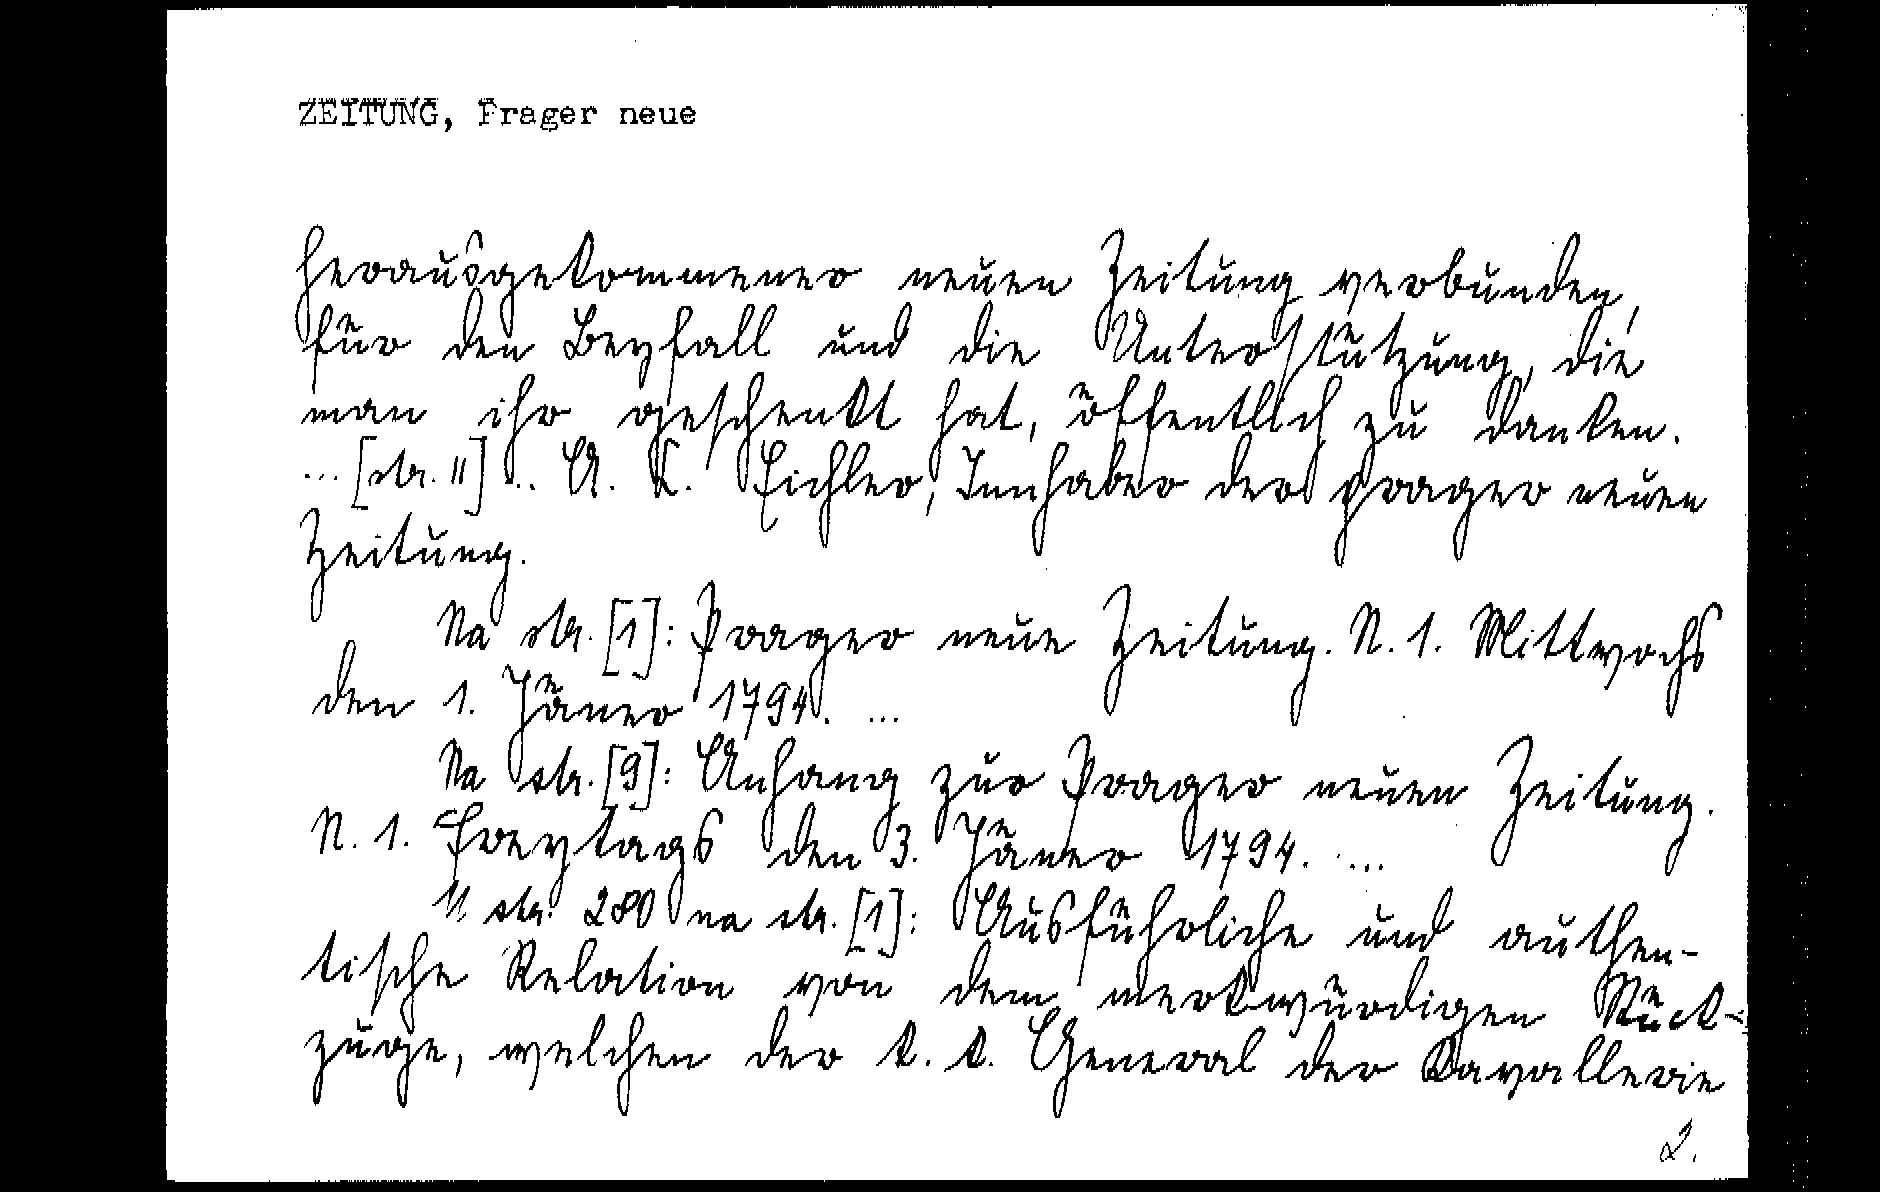 ZEITUNG, Prager neue
herausgekommener neuen Zeitung verbunden,
für den Beyfall und die Unterstützung, die
man ihr geschenkt hat, öffentlich zu danken.
... [str. 11] ... A. K. Eichler, Innhaber der prager neuen
Zeitung.
Na str. [1]: Prager neue Zeitung. N. 1. Mittwochs
den 1. Jäner 1794. ...
Na str. [9]: Anhang zur Prager neuen Zeitung.
N. 1. Freytags den 3. Jäner 1794. ...
U str. 280 na str. [1]: Ausführliche und authen-
tische Relation von dem merkwürdigen Rück-
zuge, welchen der k. k. General der Kavallerie
2.